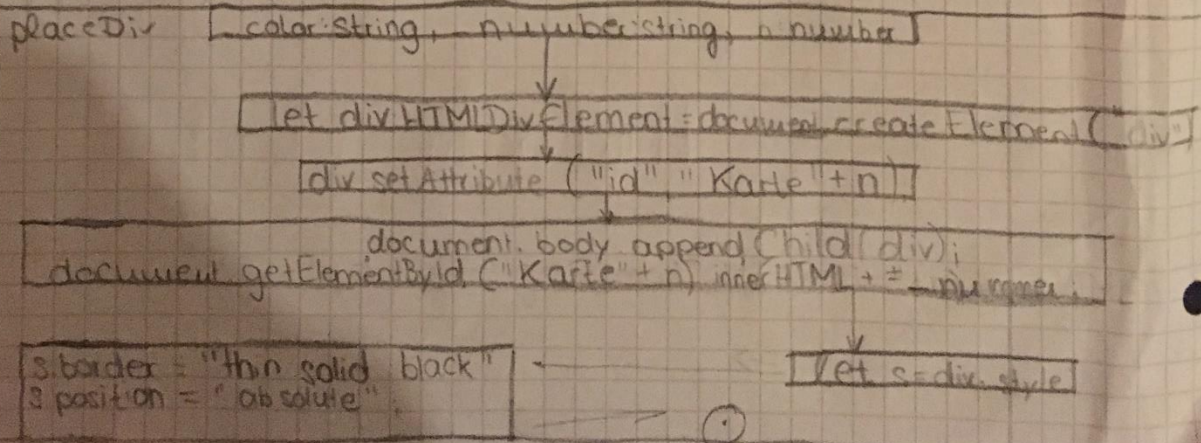 placeDiv
color:String, nuyuber:string, n number
let div HTMLDivElement = document.createElement("div")
div setAttribute ("id", "Karte"+n)
document. body append Child (div);
document getElementById ("Karte" + n) innerHTML + =
let s = div. style
s.border = "thin solid black"
s position = "absolute".